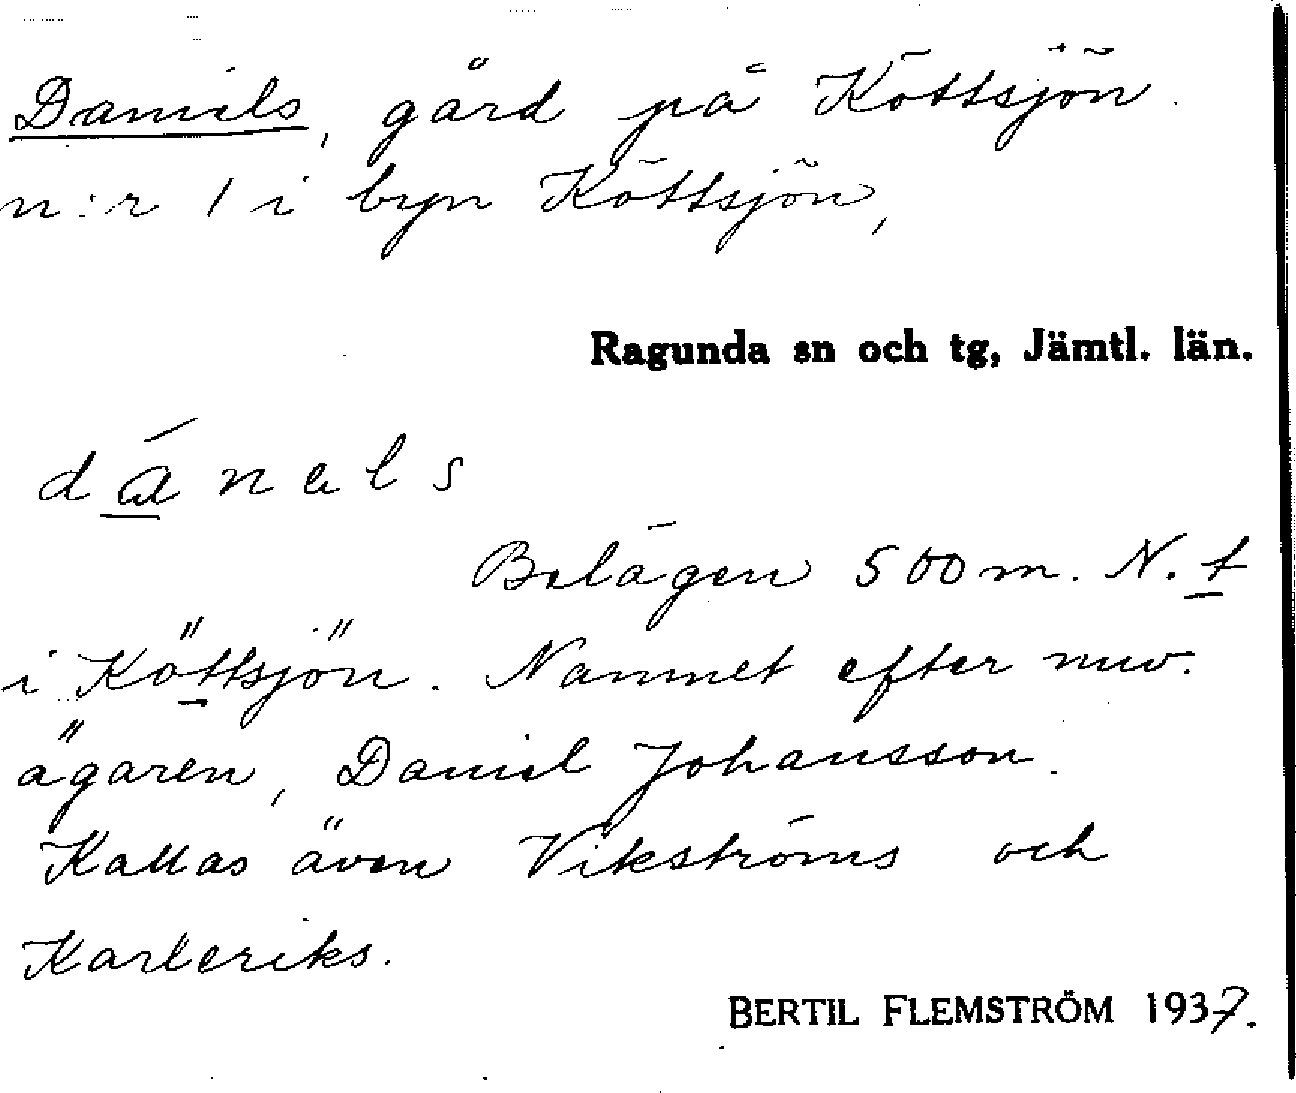 Daniels, gård på Köttsjön
n:r 1 i byn Köttsjön,
Ragunda sn och tg, Jämtl. län.
dánels
Belägen 500 m. N. f
i Köttsjön. Namnet efter nuv.
ägaren, Daniel Johansson.
Kallas även Vikströms och
Karleriks.
BERTIL FLEMSTRÖM 1937.